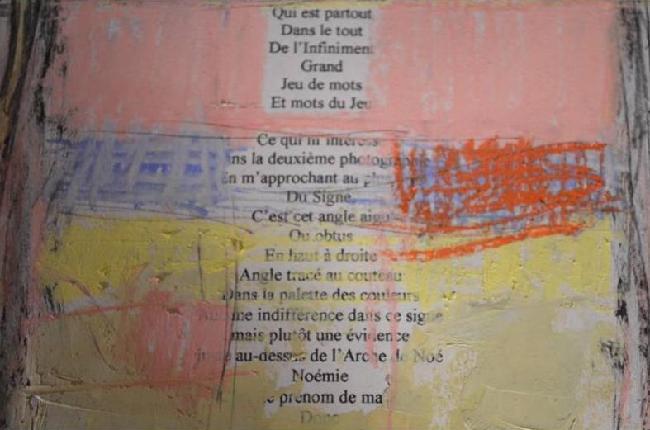 Qui est partout
Dans le tout
De l'Infiniment
Grand
Jeu de mots
Et mots du Jeu
Ce qui m'intéresse
ns la deuxième photographie
En m'approchant au plus
Du Signe
C'est cet angle aigu
Ou obtus
En haut à droite
Angle tracé au couteau
Dans la palette des couleurs
Aucune indifférence dans ce signe
mais plutôt une évidence
juste au-dessus de l'Arche de Noé
Noémie
le prénom de ma